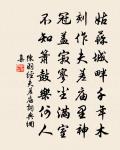 姑蘇城畔千年木
刻作夫差廟裏神
冠蓋寂寥塵滿室
不知簫鼓樂何人
陳羽經夫差廟詞典網
集